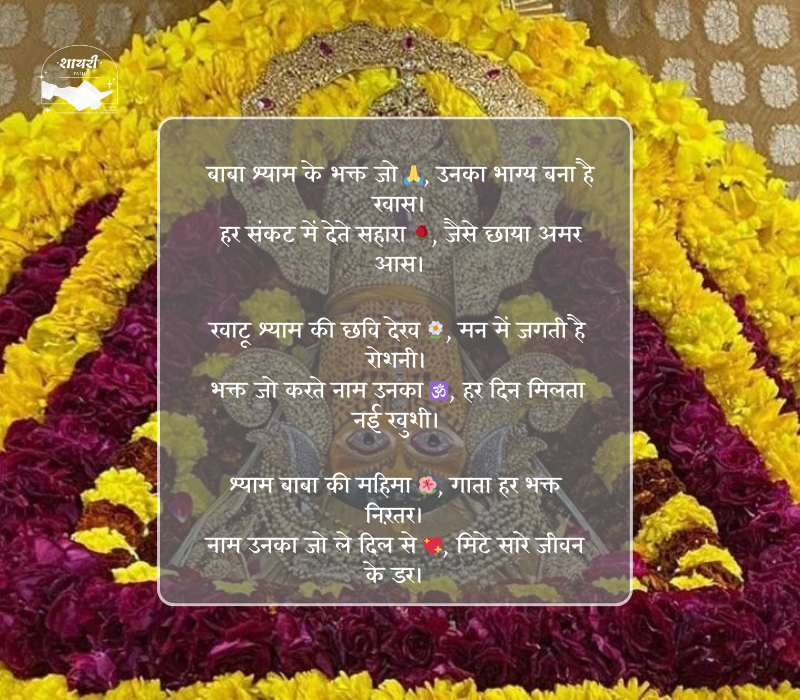 शायरी
PATH
बाबा श्याम के भक्त जो 🙏, उनका भाग्य बना है
खास।
हर संकट में देते सहारा 🌹, जैसे छाया अमर
आस।
खाटू श्याम की छवि देख 🌼, मन में जगती है
रोशनी।
भक्त जो करते नाम उनका 🕉️, हर दिन मिलता
नई खुशी।
श्याम बाबा की महिमा 🌺, गाता हर भक्त
निरंतर।
नाम उनका जो ले दिल से 💖, मिटे सारे जीवन
के डर।